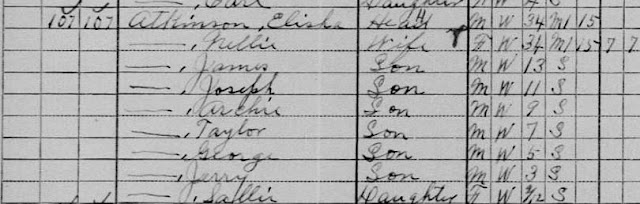 Earl Daughter F W 4 S
107 107 Atkinson, Elisha Head M W 34 M1 15
—, Nellie Wife F W 34 M1 15 7 7
—, James Son M W 13 S
—, Joseph Son M W 11 S
—, Archie Son M W 9 S
—, Taylor Son M W 7 S
—, George Son M W 5 S
—, Jerry Son M W 3 S
—, Sallie Daughter F W 3/12 S